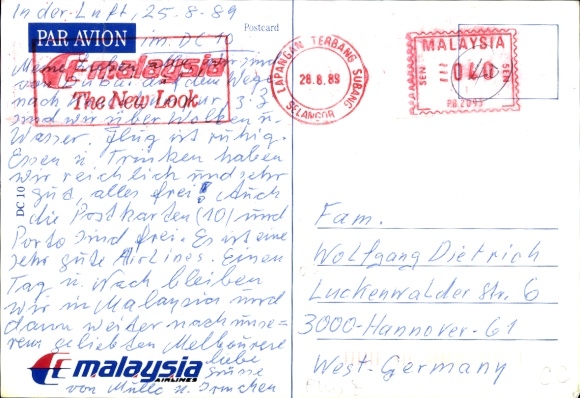 In der Luft, 25-8-89
Postcard
PAR AVION
im DC 10
malaysia
The New Look
LAPANGAN TERBANG SUBANG
28.8.89
SELANGOR
MALAYSIA
SEN 040 SEN
P.B.2045
Meine
von auf dem Wege
nach z.Z.
sind wir über Wolken u.
Wasser. Flug ist ruhig.
Essen u. Trinken haben
wir reichlich und sehr
gut, alles frei! Auch
die Postkarten (10) und
Porto sind frei. Es ist eine
sehr gute Airlines. Einen
Tag u. Nach bleiben
wir in Malaysia und
dann weiter nach unse-
rem geliebten Melbourne
liebe
Grüsse
von u.
DC 10
malaysia
AIRLINES
Fam.
Wolfgang Dietrich
Luckenwalder Str. 6
3000-Hannover-61
West-Germany